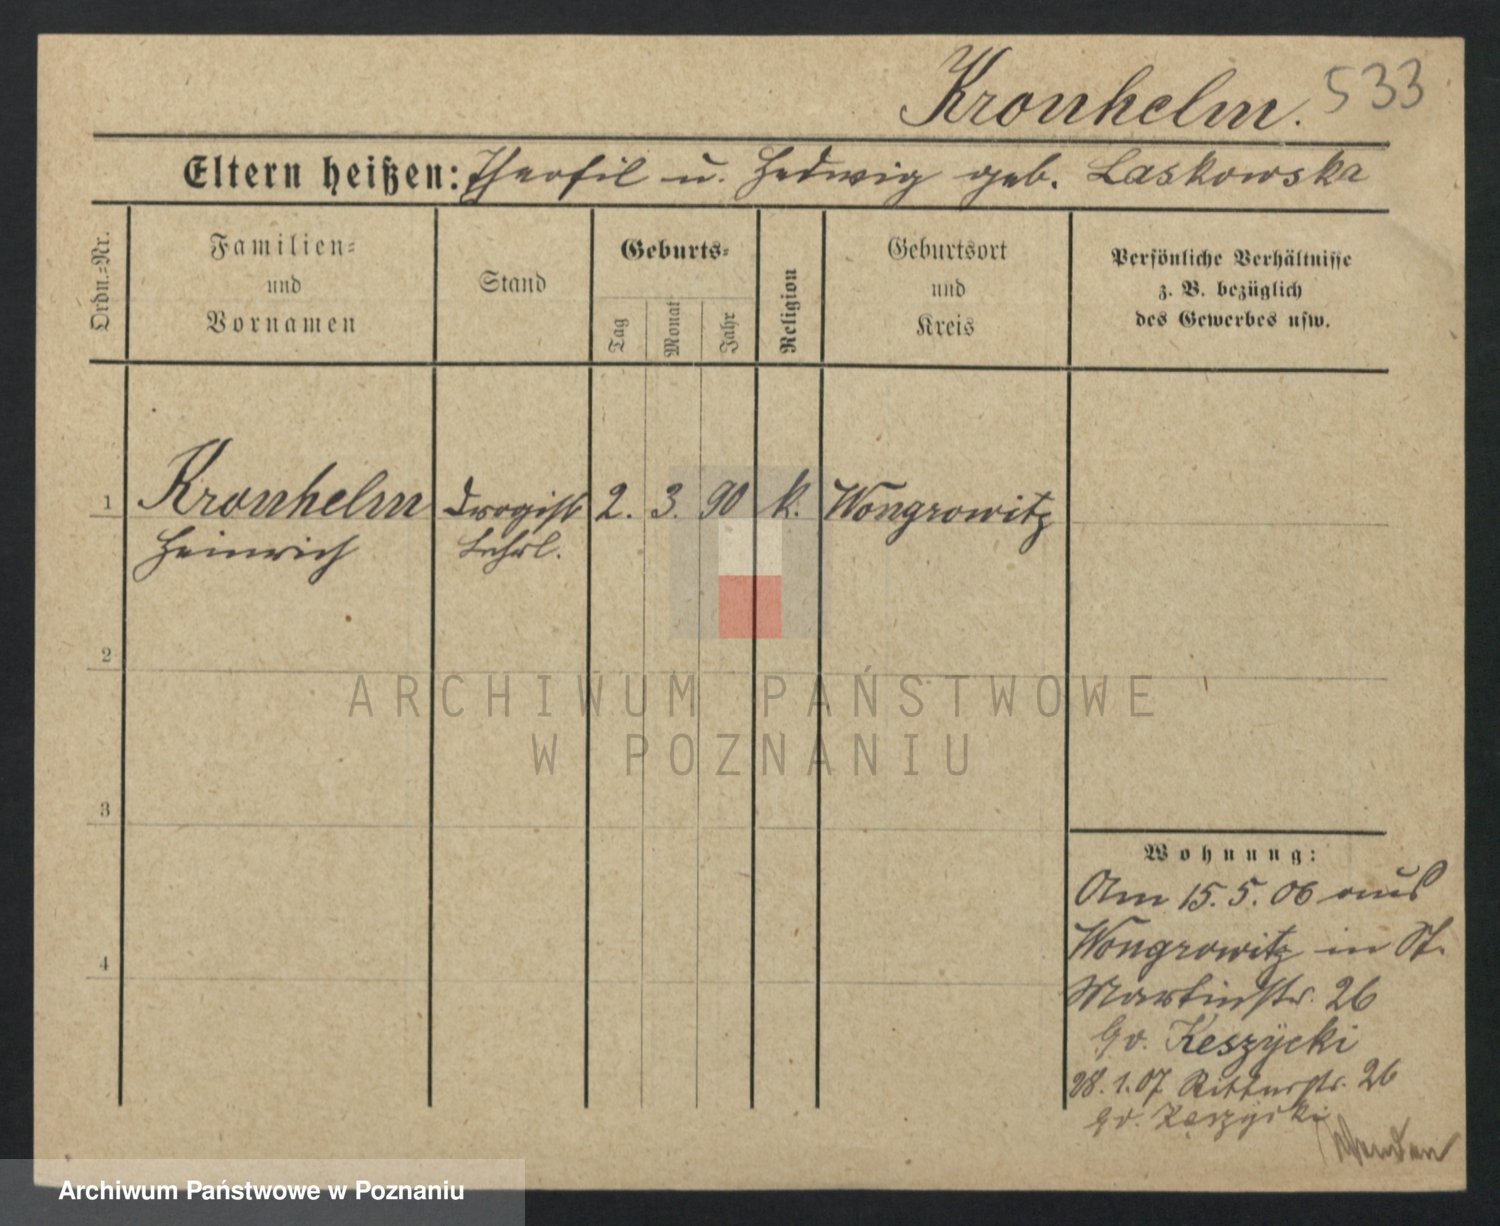 Kronhelm. 533
Eltern heißen: Theofil u. Hedwig geb. Laskowska
Ordn.-Nr.
Familien-
und
Vornamen
Stand
Geburts-
Tag
Monat
Jahr
Religion
Geburtsort
und
Kreis
Persönliche Verhältnisse
z. B. bezüglich
des Gewerbes usw.
1 Kronhelm Drogist 2. 3. 90 k. Wongrowitz
Heinrich Lehrl.
2
3
4
ARCHIWUM PAŃSTWOWE
W POZNANIU
Wohnung:
Am 15.5.06 aus
Wongrowitz in St.
Martinstr. 26
Keszycki
28.1.07 Ritterstr. 26
Keszycki
Wenden
Archiwum Państwowe w Poznaniu